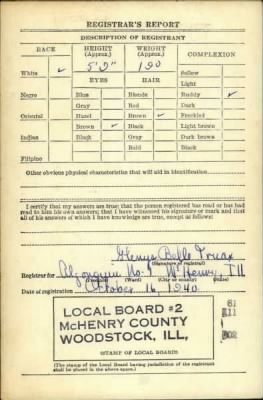 REGISTRAR'S REPORT
DESCRIPTION OF REGISTRANT
RACE HEIGHT (Approx.) WEIGHT (Approx.) COMPLEXION
White ✓ 5'9" 190 Sallow
EYES HAIR Light
Negro Blue Blonde Ruddy ✓
Gray Red Dark
Oriental Hazel Brown ✓ Freckled
Brown ✓ Black Light brown
Indian Black Gray Dark brown
Bald Black
Filipino
Other obvious physical characteristics that will aid in identification
I certify that my answers are true; that the person registered has read or has had
read to him his own answers; that I have witnessed his signature or mark and that
all of his answers of which I have knowledge are true, except as follows:
Belle Truax
(Signature of registrar)
Registrar for Algonquin No. McHenry, Ill
Date of registration October 16, 1940
LOCAL BOARD #2
McHENRY COUNTY
WOODSTOCK, ILL,
(STAMP OF LOCAL BOARD)
(The stamp of the Local Board having jurisdiction of the registrant
shall be placed in the above space.)